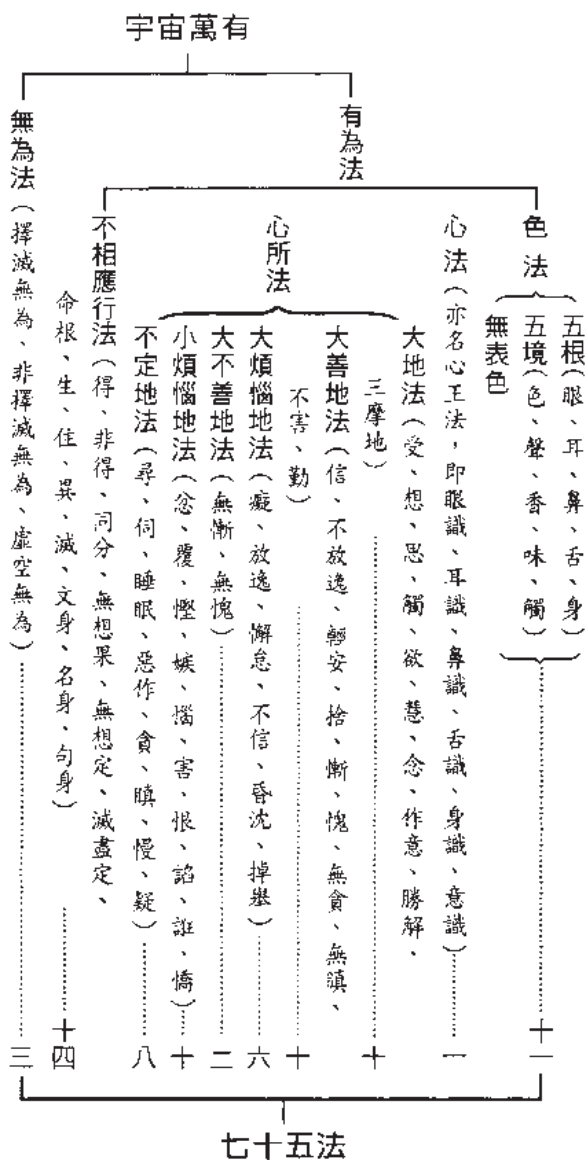 宇宙萬有
有為法
色法
五根（眼、耳、鼻、舌、身）
五境（色、聲、香、味、觸）
無表色
十一
心法（亦名心王法，即眼識、耳識、鼻識、舌識、身識、意識）
一
心所法
大地法（受、想、思、觸、欲、慧、念、作意、勝解、
三摩地）
十
大善地法（信、不放逸、輕安、捨、慚、愧、無貪、無瞋、
不害、勤）
十
大煩惱地法（癡、放逸、懈怠、不信、昏沈、掉舉）
六
大不善地法（無慚、無愧）
二
小煩惱地法（忿、覆、慳、嫉、惱、害、恨、諂、誑、憍）
十
不定地法（尋、伺、睡眠、惡作、貪、瞋、慢、疑）
八
不相應行法（得、非得、同分、無想果、無想定、滅盡定、
命根、生、住、異、滅、文身、名身、句身）
十四
無為法（擇滅無為、非擇滅無為、虛空無為）
三
七十五法